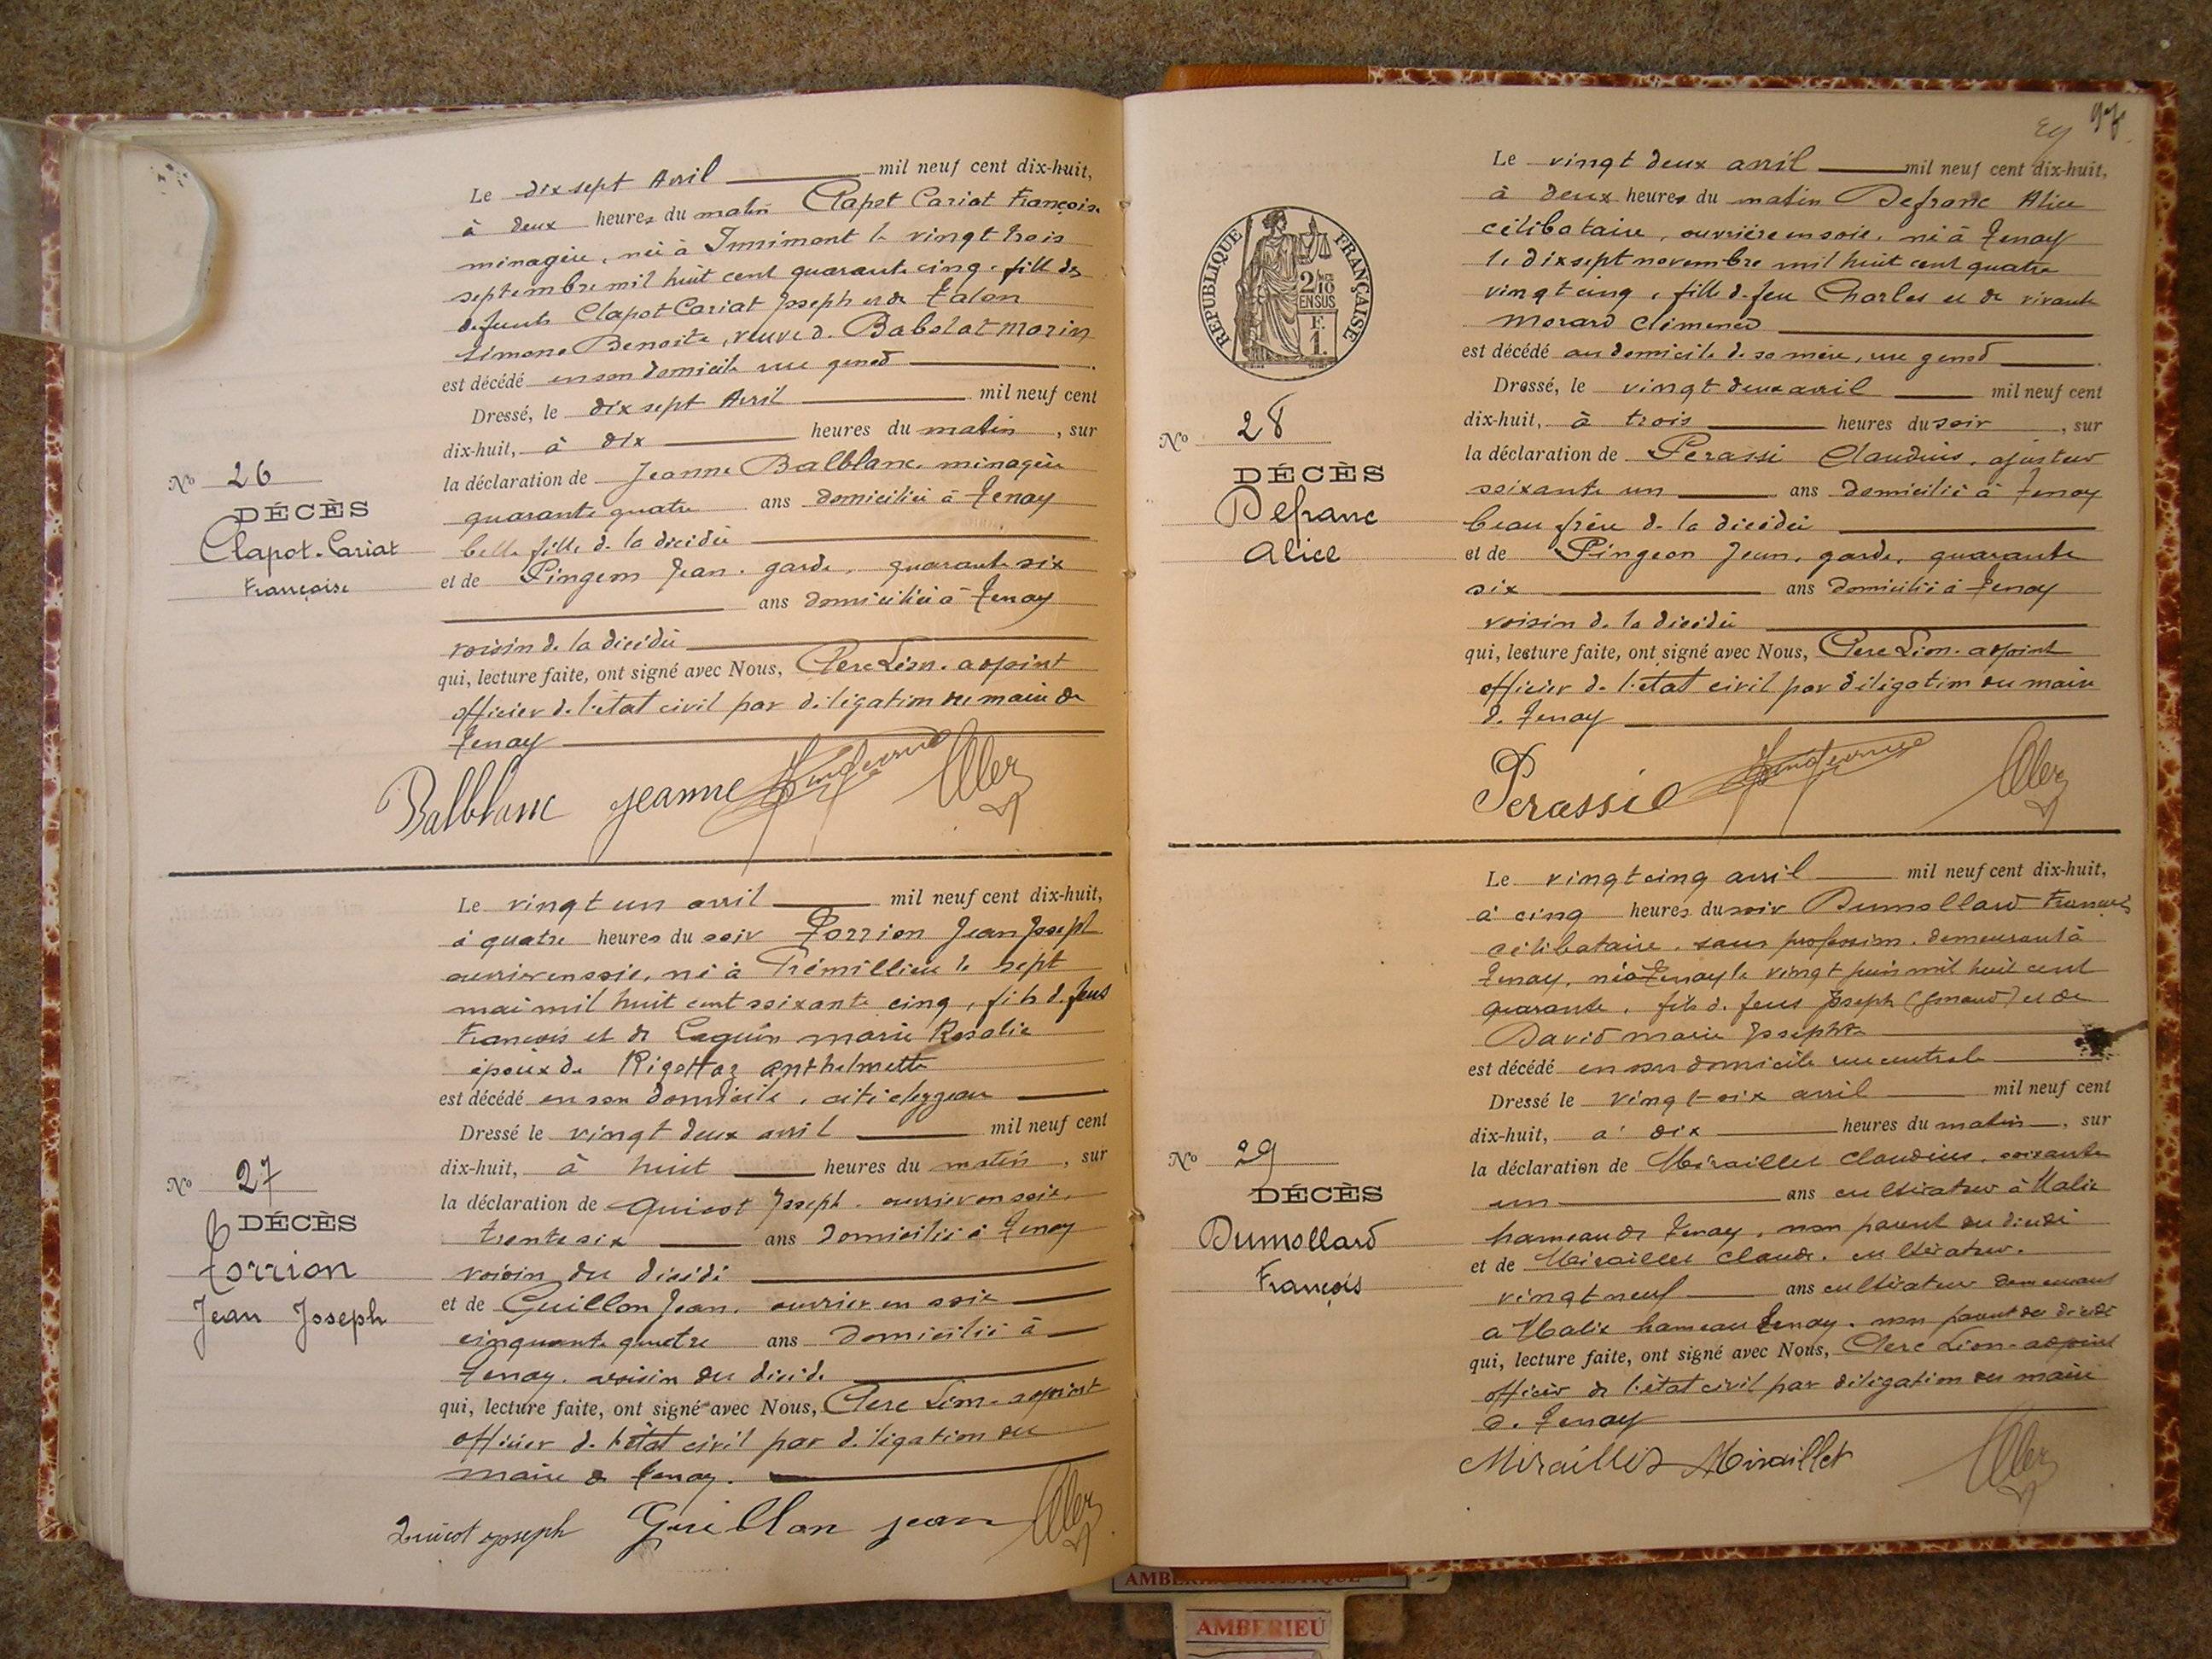 Le dix sept Avril mil neuf cent dix-huit,
à deux heures du matin Clapot Cariat Françoise
ménagère, née à Innimont le vingt trois
septembre mil huit cent quarante cinq, fille des
défunts Clapot Cariat Joseph et de Talon
Simone Benoite, veuve de Babolat Morin
est décédé en son domicile rue genod
Dressé, le dix sept Avril mil neuf cent
dix-huit, à dix heures du matin, sur
la déclaration de Jeanne Balblanc, ménagère
quarante quatre ans domiciliée à Tenay
belle fille de la décédée
et de Pingeon Jean, garde, quarante six
ans domicilié à Tenay
voisin de la décédée
qui, lecture faite, ont signé avec Nous, Clerc Léon, adjoint
officier de l'état civil par délégation du maire de
Tenay
Balblanc Jeanne
No 26
DÉCÈS
Clapot-Cariat
Françoise
Le vingt un avril mil neuf cent dix-huit,
à quatre heures du soir Torrion Jean Joseph
ouvrier en soie, né à Prémillieu le sept
mai mil huit cent soixante cinq, fils de feus
François et de Laguin marie Rosalie
époux de Rigottaz anthelmette
est décédé en son domicile, cité
Dressé le vingt deux avril mil neuf cent
dix-huit, à huit heures du matin, sur
la déclaration de Quicot Joseph, ouvrier en soie,
trente six ans domicilié à Tenay
voisin du décédé
et de Guillon Jean, ouvrier en soie
cinquante quatre ans domicilié à
Tenay, voisin du décédé
qui, lecture faite, ont signé avec Nous, Clerc Léon, adjoint
officier de l'état civil par délégation du
maire de Tenay.
Quicot Joseph Guillon jean
No 27
DÉCÈS
Torrion
Jean Joseph
97
RÉPUBLIQUE FRANÇAISE
2/10
EN SUS
F.
1.
Le vingt deux avril mil neuf cent dix-huit,
à deux heures du matin Defranc Alice
célibataire, ouvrière en soie, née à Tenay
le dix sept novembre mil huit cent quatre
vingt cinq, fille de feu Charles et de vivante
Morard Climened
est décédé au domicile de sa mère, rue genod
Dressé, le vingt deux avril mil neuf cent
dix-huit, à trois heures du soir, sur
la déclaration de Perassi Claudius, ajusteur
soixante un ans domicilié à Tenay
beau frère de la décédée
et de Pingeon Jean, garde, quarante
six ans domicilié à Tenay
voisin de la décédée
qui, lecture faite, ont signé avec Nous, Clerc Léon, adjoint
officier de l'état civil par délégation du maire
de Tenay
Perassi
No 28
DÉCÈS
Defranc
Alice
Le vingt cinq avril mil neuf cent dix-huit,
à cinq heures du soir Dumollard François
célibataire, sans profession, demeurant à
Tenay, né à Tenay le vingt juin mil huit cent
quarante, fils de feus Joseph et de
David marie Josephte
est décédé en son domicile rue centrale
Dressé le vingt-six avril mil neuf cent
dix-huit, à dix heures du matin, sur
la déclaration de Miraillet Claudius, soixante
un ans cultivateur à Malix
hameau de Tenay, non parent du décédé
et de Miraillet Claude, cultivateur,
vingt neuf ans cultivateur demeurant
à Malix hameau Tenay, non parent du décédé
qui, lecture faite, ont signé avec Nous, Clerc Léon, adjoint
officier de l'état civil par délégation du maire
de Tenay
Miraillet Miraillet
No 29
DÉCÈS
Dumollard
François
AMBERIEU